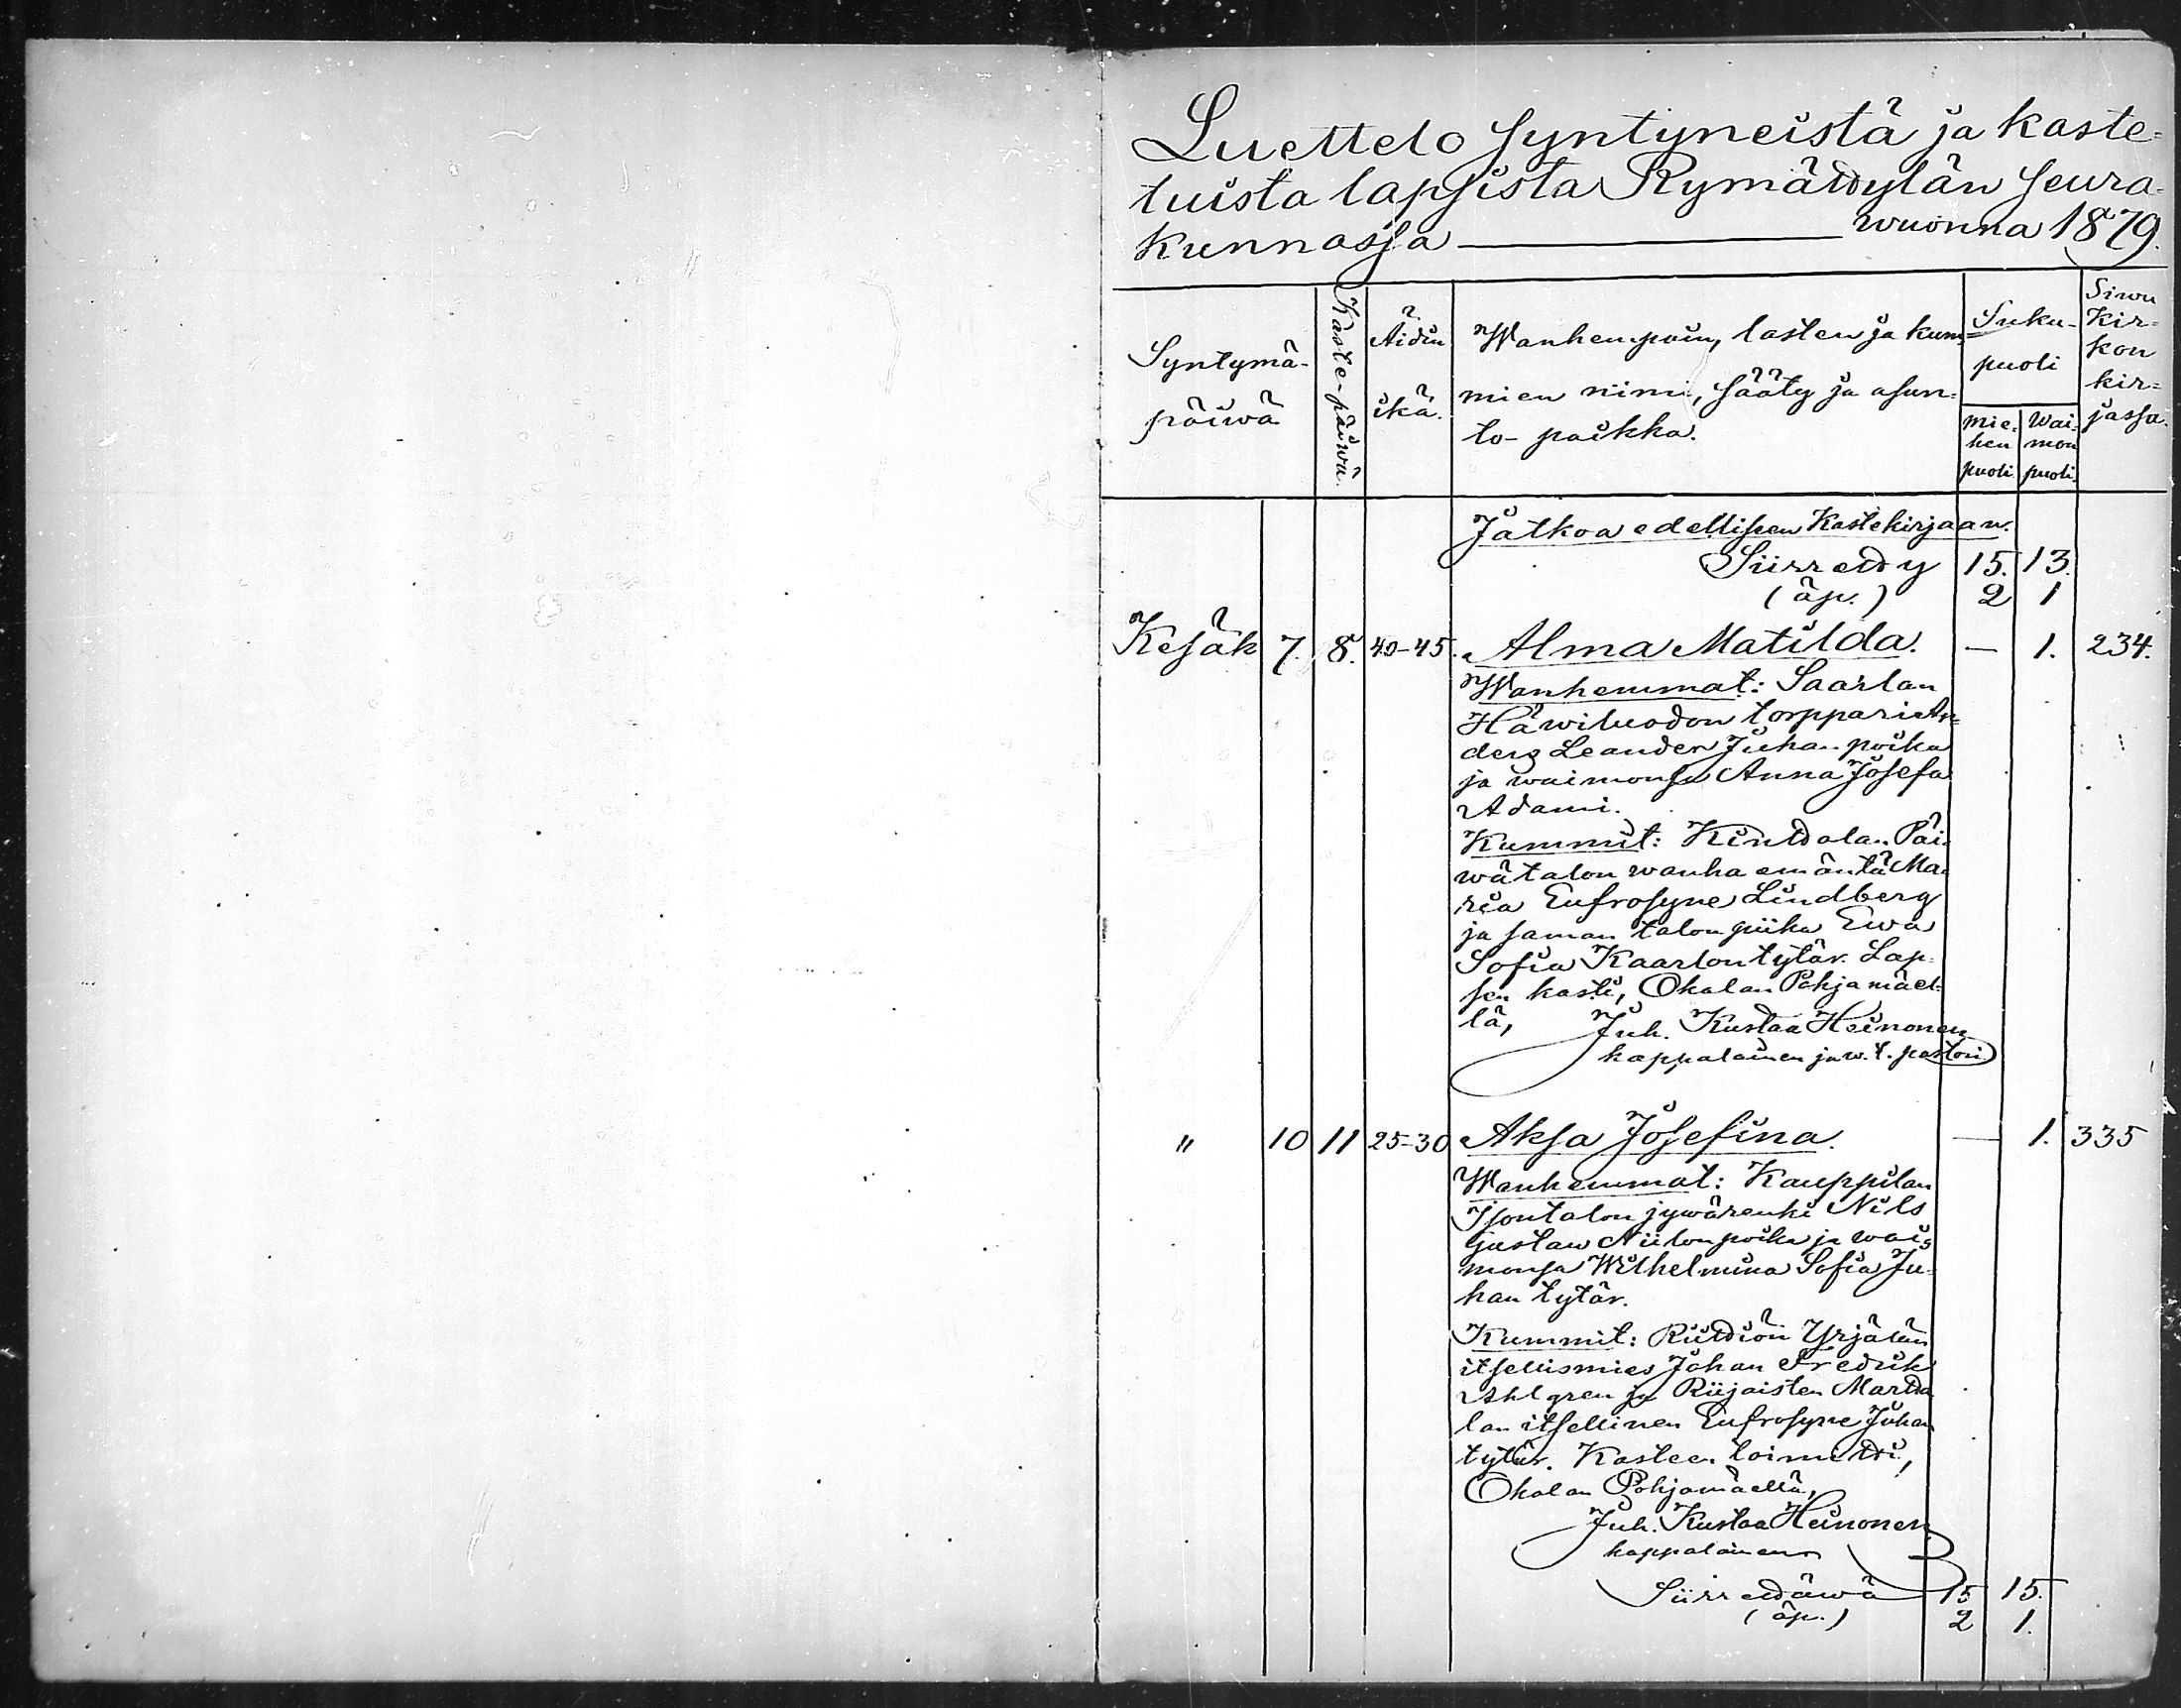 Luettelo syntyneistä ja kaste-
tuista lapsista Rymättylän seura-
kunnassa — wuonna 1879.
Syntymä-
päiwä
Kaste-päiwä.
Äidin
ikä.
Wanhempain, lasten ja kum-
mien nimi, sääty ja asun-
to-paikka.
Suku-
puoli
mie-
hen
puoli.
wai-
mon
puoli.
Siwu
Kir-
kon
kir-
jassa.
Jatkoa edellisen Kastekirjaan.
Siirretty 15. 13.
(äp.) 2 1
Kesäk 7. 8. 40-45. Alma Matilda. — 1. 234.
Wanhemmat: Saarlan
Häwiluodon torppari An-
ders Leander Juhan poika
ja waimonsa Anna Josefa
Adami.
Kummit: Kuntolan Päi-
wätalon wanha emäntä Ma-
ria Eufrosyne Lindberg
ja saman talon piika Ewa
Sofia Kaarlontytär. Lap-
sen kasti, Okalan Pohjamäel-
lä, Juh. Kustaa Heinonen
kappalainen ja w.t. pastori.
" 10 11 25-30 Aksa Josefina. — 1. 335
Wanhemmat: Kauppilan
Isontalon jywärenki Nils
Gustaw Niilonpoika ja wai-
monsa Wilhelmina Sofia Ju-
han tytär.
Kummit: Riittiön Yrjälän
itsellismies Johan Fredrik
Ahlgren ja Riijaisten Martta
lan itsellinen Eufrosyne Juhan
tytär. Kasteen toimitti,
Okalan Pohjamäellä,
Juh. Kustaa Heinonen
kappalainen
Siirrettäwä 15 15.
(äp.) 2 1.